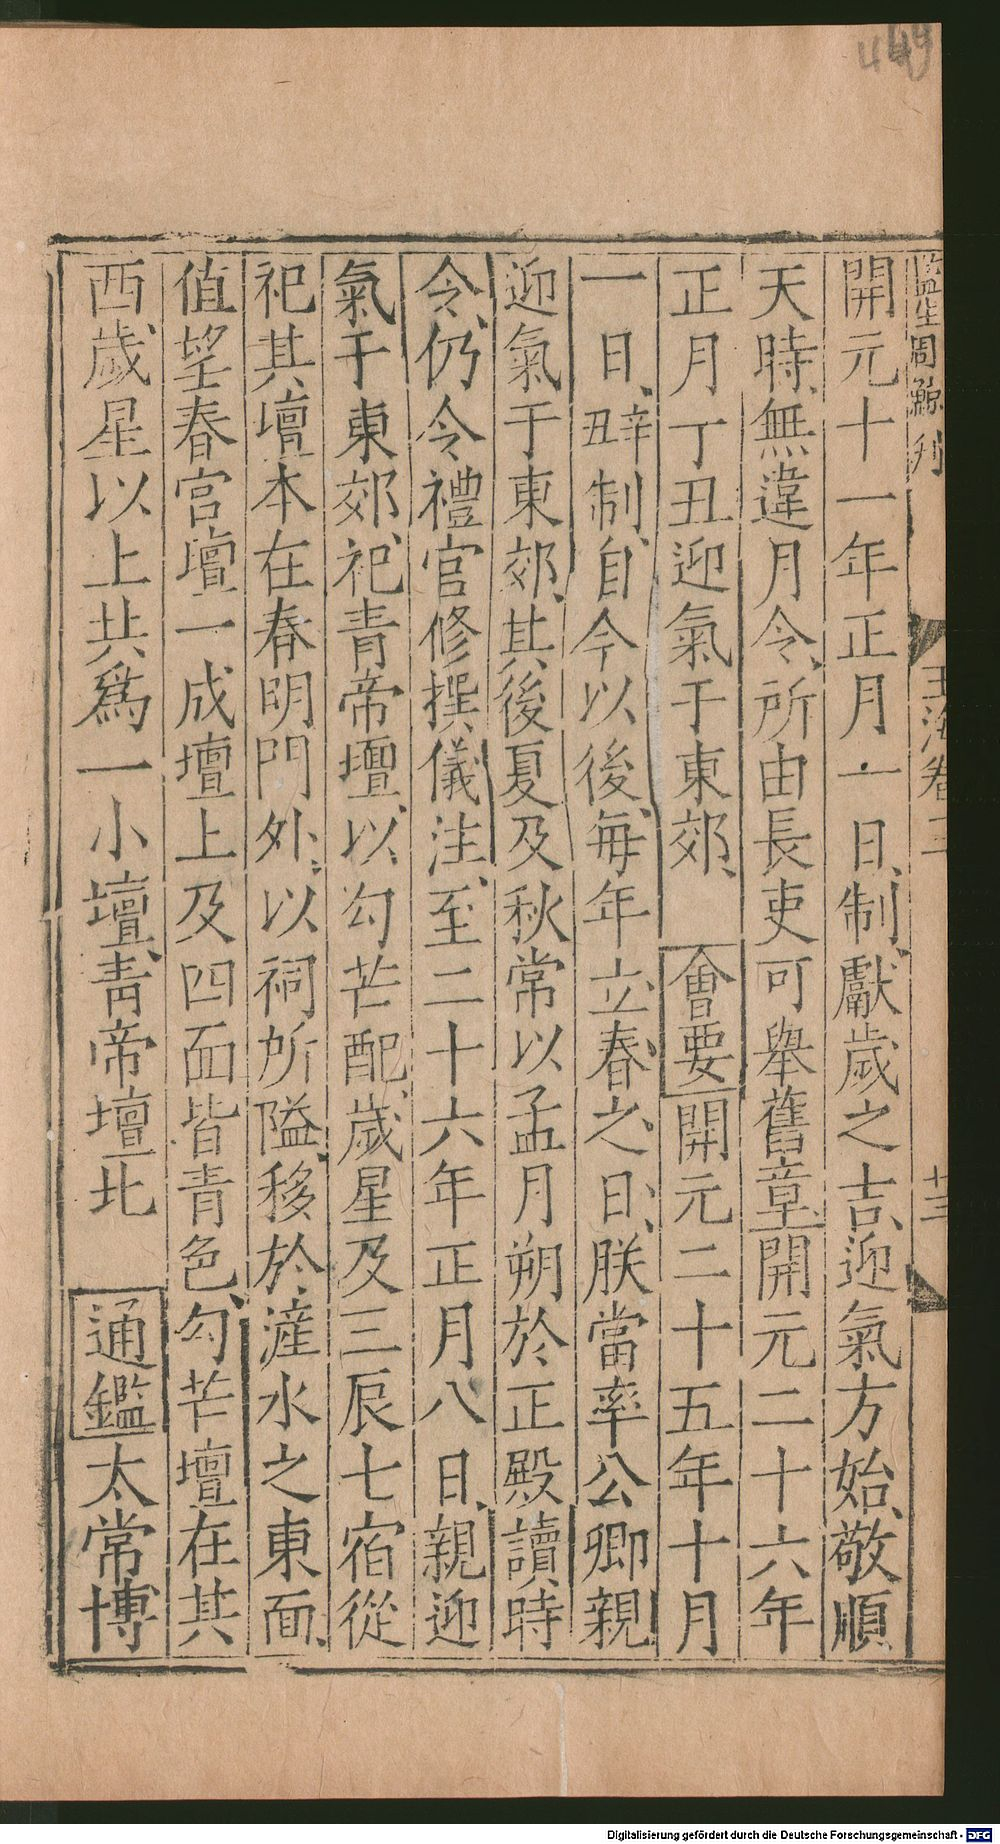 449
監生周 刋
玉海卷 廿三
開元十一年正月一日、制、獻歲之吉、迎氣方始、敬順
天時、無違月令、所由長吏可舉舊章、開元二十六年
正月丁丑迎氣于東郊、會要開元二十五年十月
一日、辛丑制、自今以後、每年立春之日、朕當率公卿親
迎氣于東郊、其後夏及秋常以孟月朔於正殿讀時
令、仍令禮官修撰儀注、至二十六年正月八日、親迎
氣于東郊、祀青帝壇、以勾芒配、歲星及三辰七宿從
祀其壇本在春明門外、以祠所隘、移於滻水之東面、
值望春宮壇一成壇上及四面皆青色、勾芒壇在其
西歲星以上共爲一小壇、青帝壇北 通鑑太常博
Digitalisierung gefördert durch die Deutsche Forschungsgemeinschaft - DFG